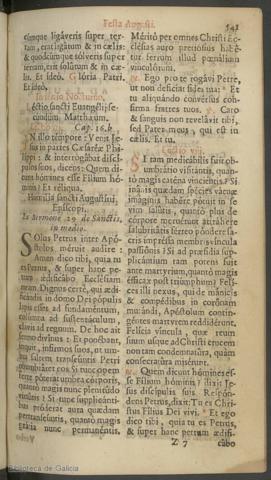 Festa Augusti.
541
cumque ligáveris super ter-
ram, erat ligátum & in cælis:
& quodcúmque sólveris super
terram, erit solútum & in cæ-
lis. Et ídeò. Glória Patri.
Et ídeò.
In tertio Nocturno.
Léctio sancti Evangelij se-
cúndum Matthæum.
Cap. 16. b
IN illo témpore: Venit Je-
sus in partes Cæsaréæ Phi-
líppi: & interrogábat discí-
pulos suos, dicens: Quem di-
cunt hómines esse Fílium hó-
minis? Et réliqua.
Homilía sancti Augustíni
Epíscopi.
In Sermone 29. de Sanctis,
in medio.
SOlus Petrus inter Apó-
stolos méruit audíre:
Amen dico tibi, quia tu
es Petrus, & super hanc pe-
tram ædificábo Ecclésiam
meam. Dignus certè, qui ædi-
ficándis in domo Dei pópulis
lapis esset ad fundaméntum,
colúmna ad sustentáculum,
clavis ad regnum. De hoc ait
sermo divínus: Et ponébant,
inquit, infírmos suos, ut um-
bra saltem transeúntis Petri
obumbráret eos. Si tunc opem
ferre póterat umbra córporis,
quantò magis nunc plenitúdo
virtútis? Si tunc supplicánti-
bus próderat aura quædam
pertranseúntis, quantò magis
grátia nunc permanéntis?
Méritò per omnes Christi Ec-
clésias auro pretiósius habé-
tur ferrum illud pœnálium
vinculórum.
Ego pro te rogávi Petre,
ut non defíciat fides tua: Et
tu aliquándo convérsus con-
fírma fratres tuos. Caro
& sanguis non revelávit tibi,
sed Pater meus, qui est in
cælis. Et tu.
Lectio viij.
SI tam medicábilis fuit ob-
umbrátio visitántis, quan-
tò magis caténa vinciéntis? Si
super impléx
pótuit in se
vim salútis, quantò plus de
córpore meruérunt attráhere
salubritátis férreo póndere sa-
cris impréssa membris víncula
passiónis? Si ad præsídia sup-
plicántium tam potens fuit
ante martyrium, quantò magis
éfficax post triúmphum? Felí-
ces illi nexus, qui de mánicis
& compédibus in corónam
mutándi, Apóstolum contin-
géntes mártyrem reddidérunt.
Felícia víncula, quæ reum
suum usque ad Christi crucem
non tam condemnatúra, quàm
consecratúra misérunt.
Quem dicunt hómines es-
se Fílium hóminis? dixit Je-
sus discípulis suis. Respón-
dens Petrus, dixit: Tu es Chri-
stus Fílius Dei vivi. Et ego
dico tibi, quia tu es Petrus,
& super hanc petram ædifi-
Z 7
cábo
Biblioteca de Galicia